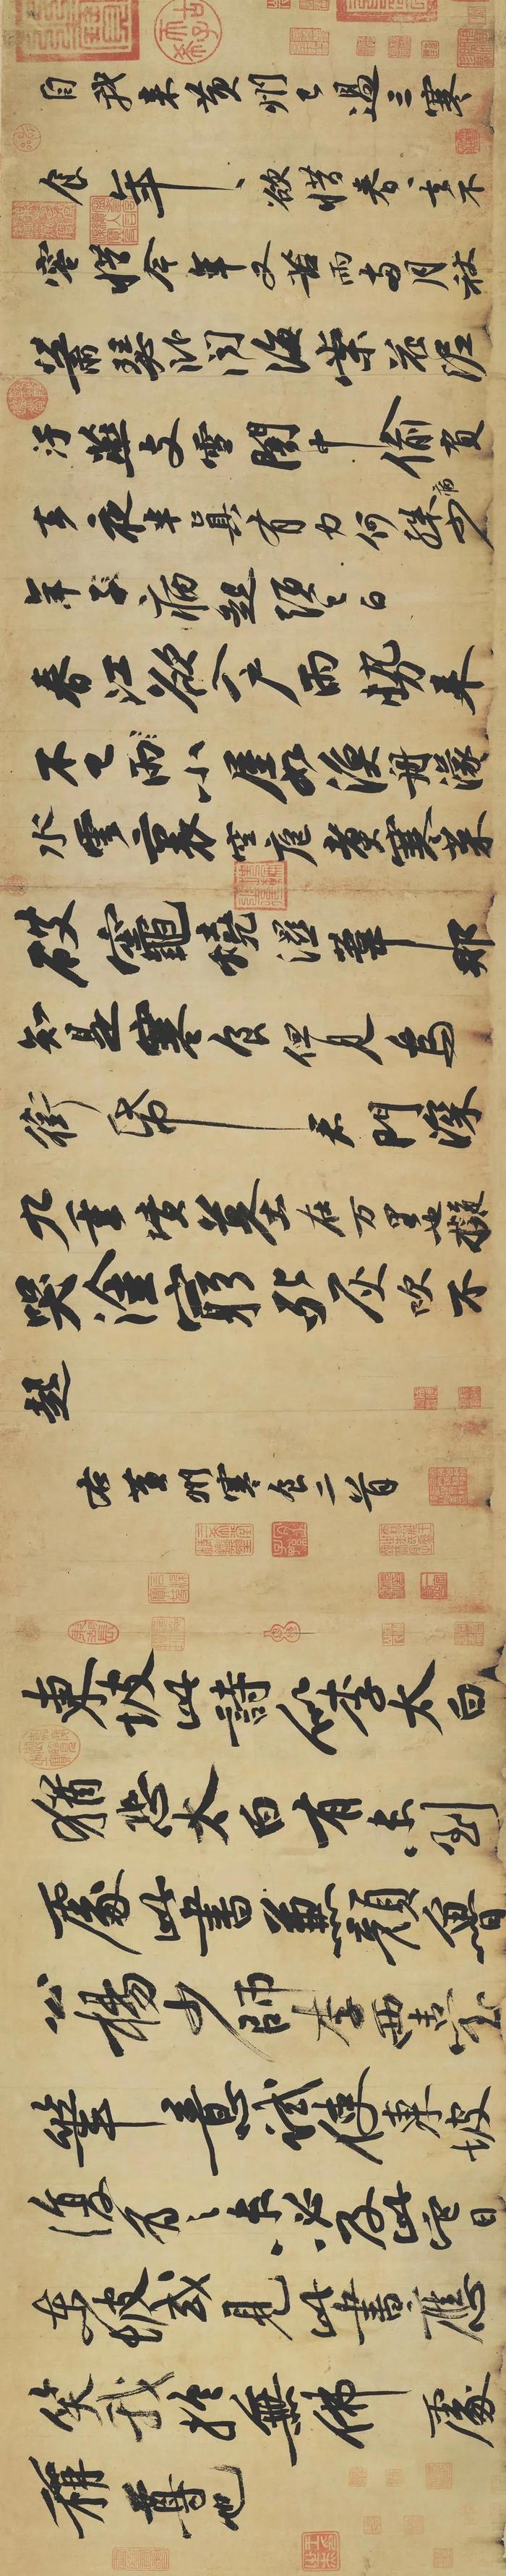 自我來黃州已過三寒
食年〻欲惜春〻去不
容惜今年又苦雨兩月秋
蕭瑟臥聞海棠花泥
汙燕支雪闇中偷負
去夜半真有力何殊病少
年子病起頭已白
春江欲入戶雨勢來
不已雨小屋如漁舟濛〻
水雲裏空庖煮寒菜
破竈燒濕葦那
知是寒食但見烏
銜帋君門深
九重墳墓在万里也擬
哭塗窮死灰吹不
起
右黃州寒食二首
東坡此詩似李太白
猶恐太白有未到
處此書兼顏魯
公楊少師李西臺
筆意試使東坡
復為之未必及此它日
東坡或見此書應
笑我於無佛處
稱尊也